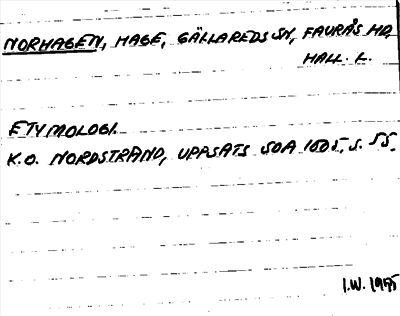 NORHAGEN, HAGE, GÄLLAREDS SN, FAURÅS HD,
HALL. L.
ETYMOLOGI.
K.O. NORDSTRAND, UPPSATS SOA 1605, S. 55.
I.W. 1955